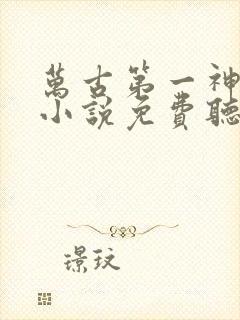 萬古第一神
小說免費聽
璟玟